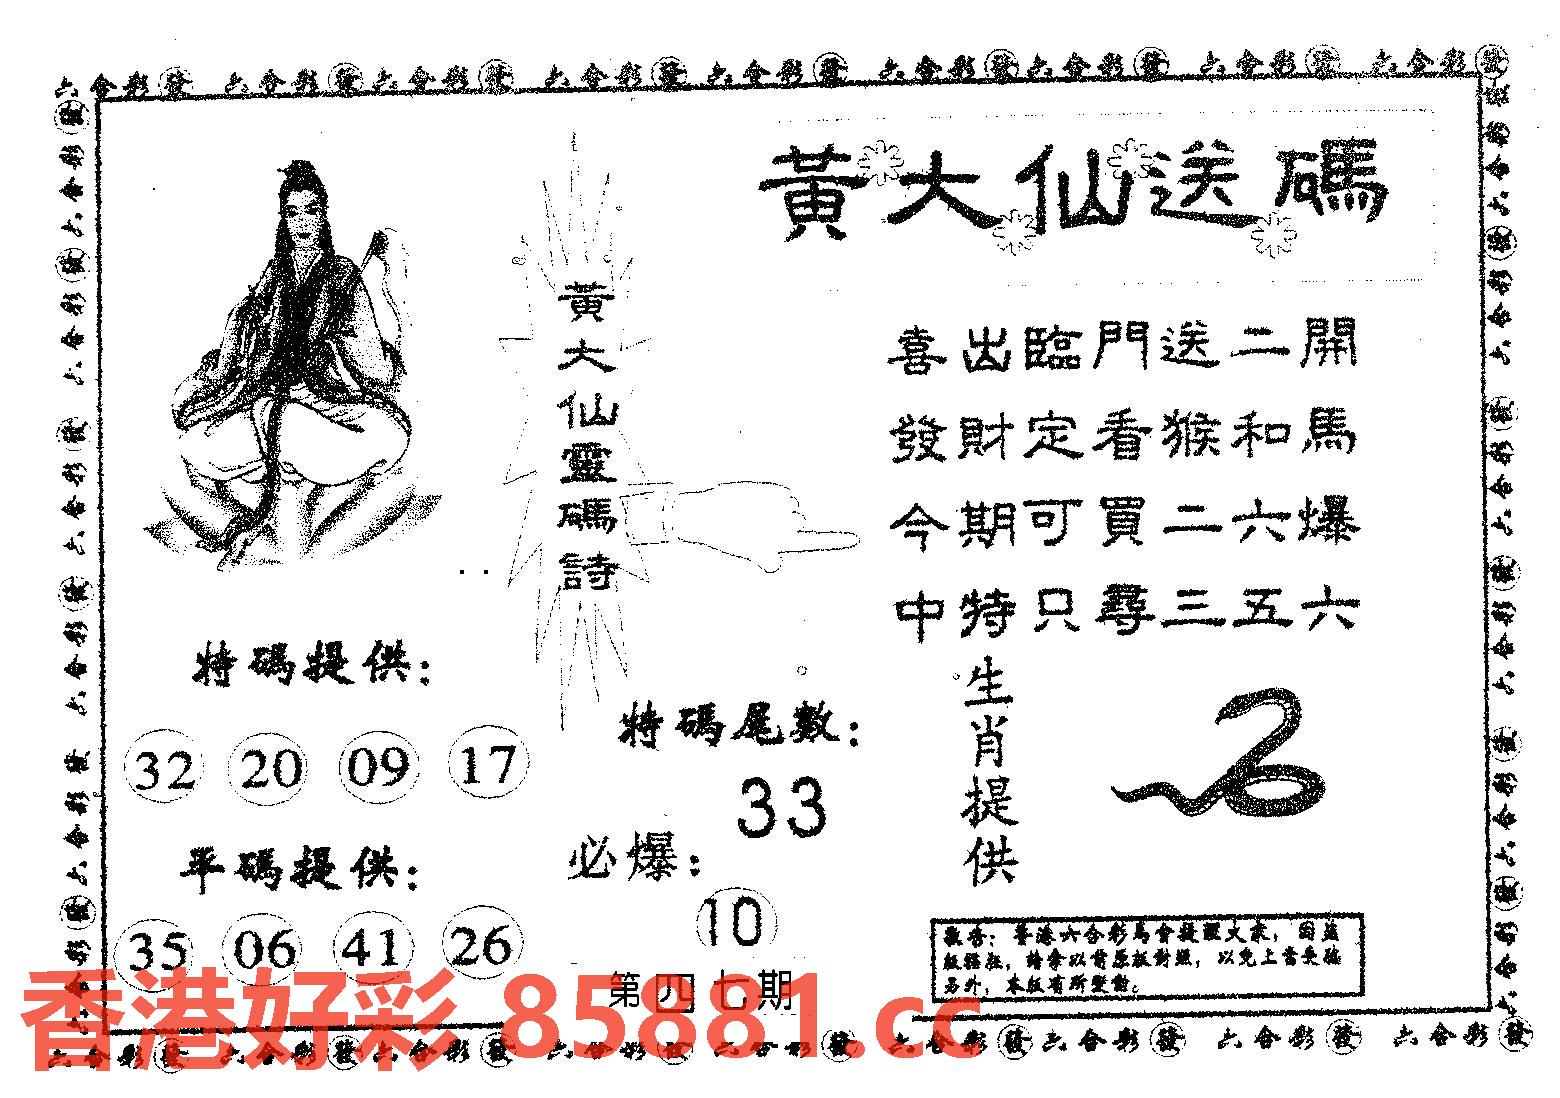 六合彩發 六合彩發 六合彩發 六合彩發 六合彩發 六合彩發 六合彩發 六合彩發 六合彩發
黃大仙送碼
黃大仙靈碼詩
喜出臨門送二開
發財定看猴和馬
今期可買二六爆
中特只尋三五六
特碼提供：
32 20 09 17
平碼提供：
35 06 41 26
特碼尾數：
33
必爆：
10
第四七期
生肖提供
敬告：香港六合彩馬會提醒大家，因盜
版猖狂，請拿以前原版對照，以免上當受騙
另外，本版有所變動。
香港好彩 85881.cc
六合彩發 六合彩發 六合彩發 六合彩發 六合彩發 六合彩發 六合彩發 六合彩發 六合彩發